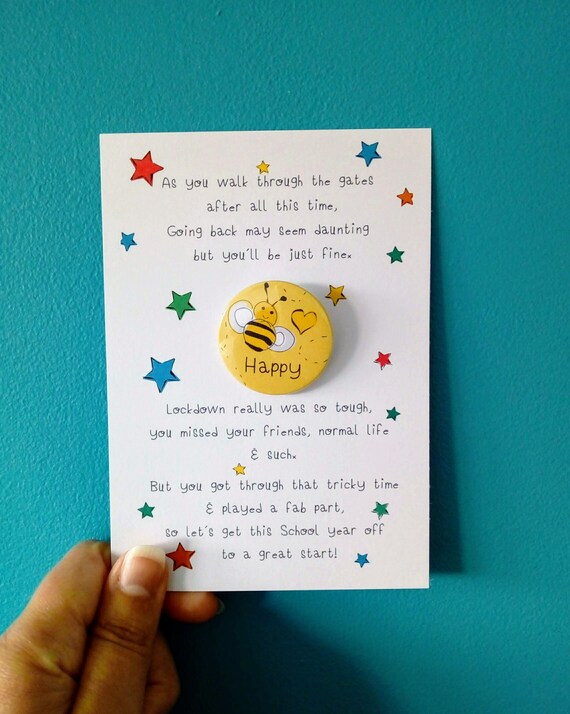 As you walk through the gates
after all this time,
Going back may seem daunting
but you'll be just fine.
Happy
Lockdown really was so tough,
you missed your friends, normal life
& such.
But you got through that tricky time
& played a fab part,
so let's get this School year off
to a great start!